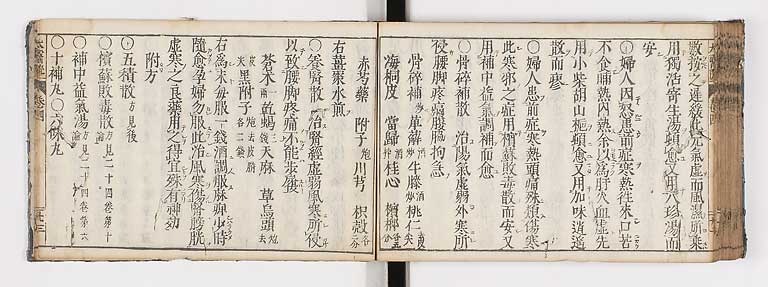 數按之遲緩此元氣虛而風濕所乘
用獨活寄生湯頓愈又用八珍湯而
安
○一婦人因怒患前症寒熱往來口苦
不食晡熱內熱余以為肝火血虛先
用小柴胡山梔頓愈又用加味逍遙
散而瘳
○一婦人患前症寒熱頭痛殊類傷寒
此寒邪之症用檳蘇敗毒散而安又
用補中益氣調補而愈
○骨碎補散 治陽氣虛弱外寒所
侵腰脚疼痛腹脇拘急
骨碎補 炒 萆薢 酒 牛膝 炒 桃仁 去皮尖
海桐皮 當歸 桂心 檳榔 各
赤芍藥 附子 炮 川芎 枳殼 各 分
右薑棗水煎
○養腎散 治腎經虛弱風寒所侵
以致腰脚疼痛不能步履
蒼朮 一兩 乾蝎 三錢 天麻 草烏頭 炮去
皮 天黑附子 炮去皮臍 各二錢
右為末每服一錢酒調服麻痺少時
隨愈孕婦勿服此治風寒傷腎膀胱
虛寒之良藥用之得宜殊有神効
附方
○五積散 方見後
○檳蘇敗毒散 方見二十四卷第十論
○補中益氣湯 方見二十四卷第六論
○十補丸○六味丸